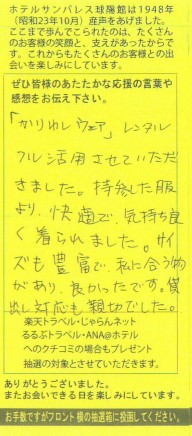 ホテルサンパレス球陽館は1948年
（昭和23年10月）産声をあげました。
ここまで歩んでこられたのは、たくさん
のお客様の笑顔と、支えがあったからで
す。これからもたくさんのお客様との出
会いを楽しみにしています。
ぜひ皆様のあたたかな応援の言葉や
感想をお伝え下さい。
「かりゆしウェア」レンタル
フル活用させていただ
きました。持参した服
より、快適で、気持ち良
く着られました。サイ
ズも豊富で、私に合う物
があり、良かったです。貸
出し対応も親切でした。
楽天トラベル・じゃらんネット
るるぶトラベル・ANA@ホテル
へのクチコミの場合もプレゼント
抽選の対象とさせていただきます。
ありがとうございました。
またお会いできる日を楽しみにしています。
お手数ですがフロント横の抽選箱に投函してください。